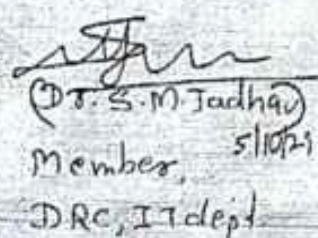 (Dr. S. M. Jadhav)
5/10/21
Member,
DRC, IT dept